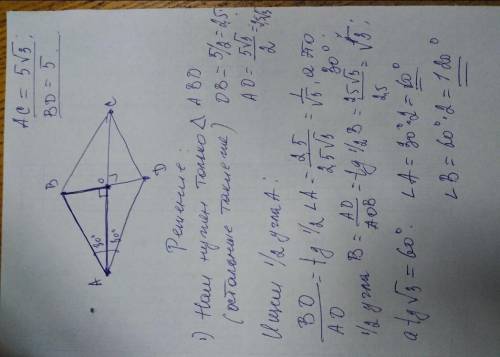 AC = 5√3
BD = 5
B
C
A
D
O
30°
30°
Решение:
1) Нам нужен только △ ABO
(остальные такие же)
OB = 5/2 = 2,5
AO = 5√3/2 = 2,5√3
Ищем 1/2 угла A:
BO/AO = tg 1/2 ∠A = 2,5/2,5√3 = 1/√3, а это 30°
1/2 угла B = AO/OB = tg 1/2 B = 2,5√3/2,5 = √3;
a tg √3 = 60°. ∠A = 30°·2 = 60°
∠B = 60°·2 = 120°